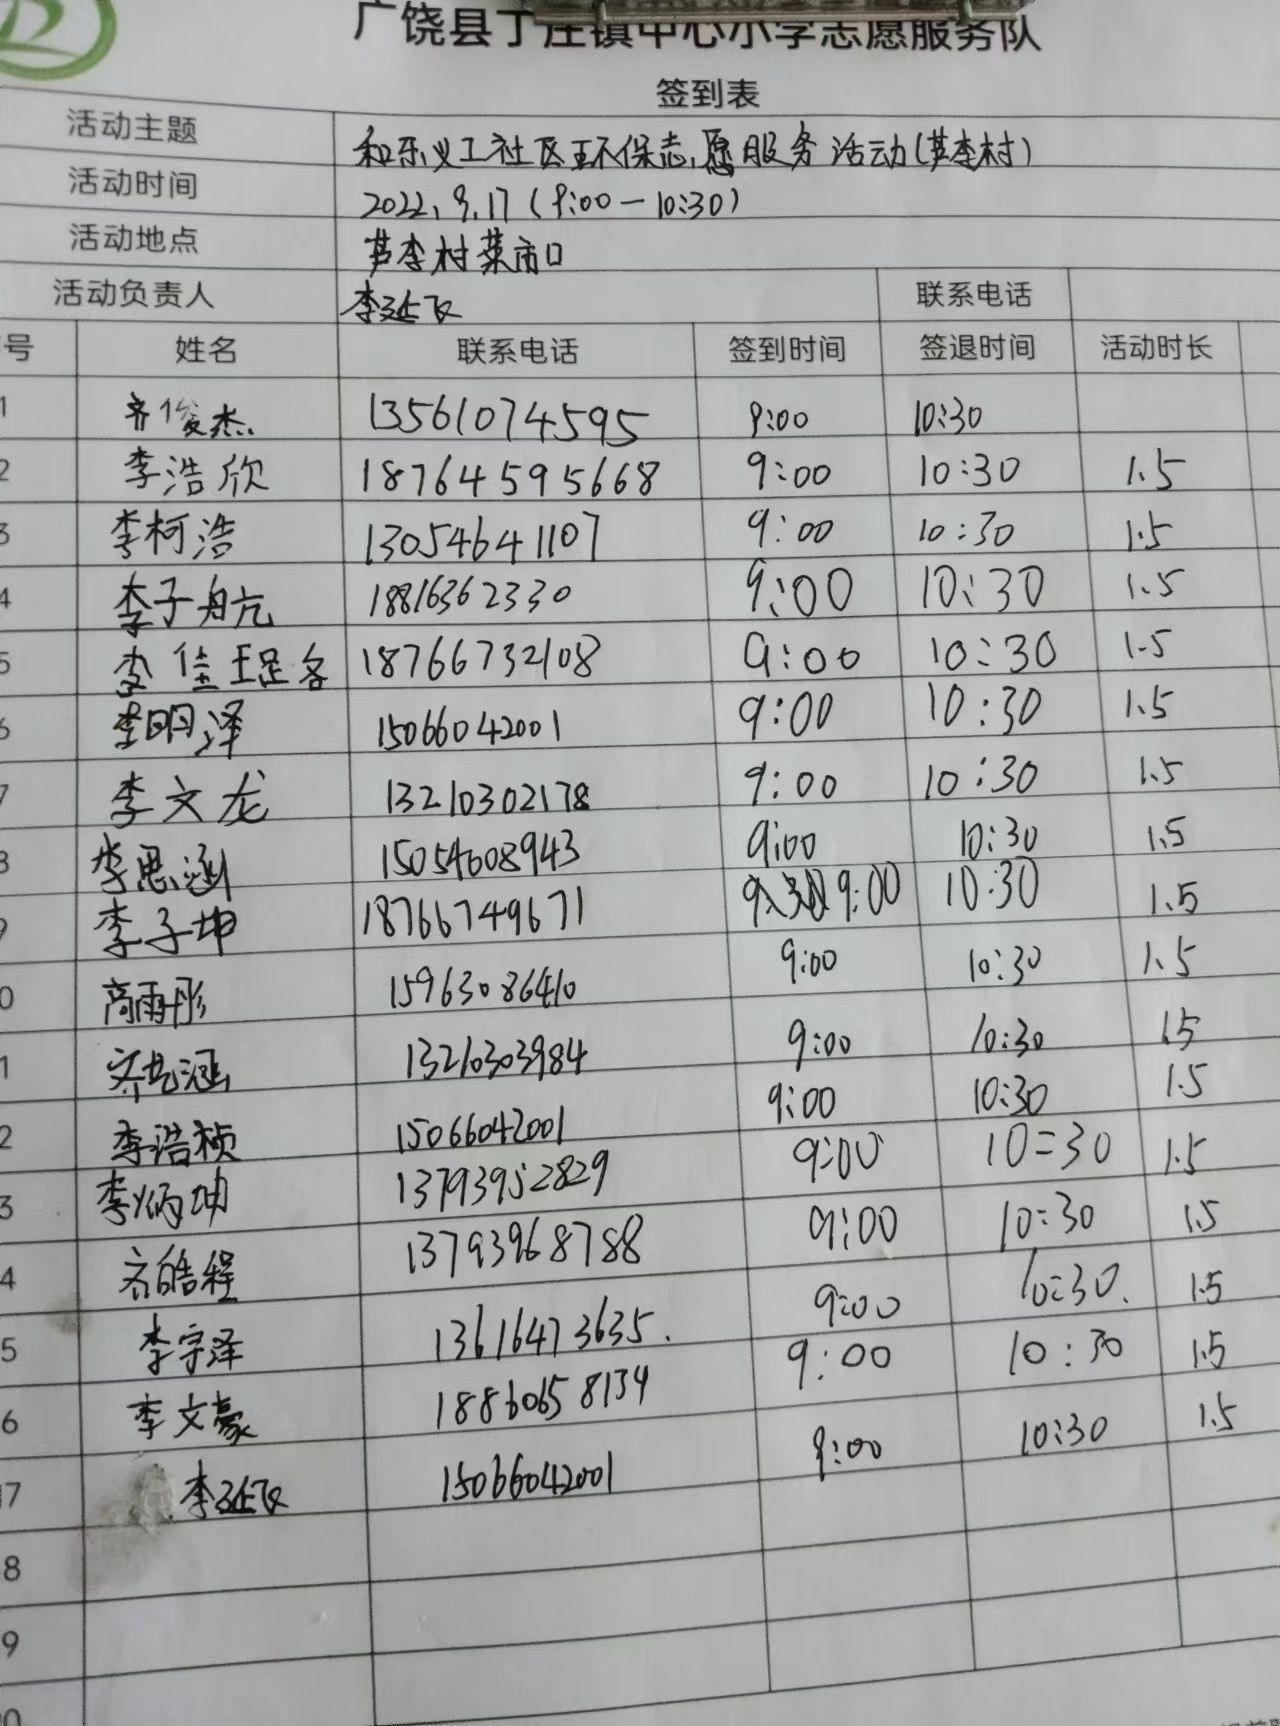 广饶县丁庄镇中心小学志愿服务队
签到表
活动主题 和乐义工社区环保志愿服务活动(芦李村)
活动时间 2022.9.17(9:00-10:30)
活动地点 芦李村菜市口
活动负责人 李延飞 联系电话
号 姓名 联系电话 签到时间 签退时间 活动时长
1 齐俊杰 13561074595 9:00 10:30
2 李浩欣 18764595668 9:00 10:30 1.5
3 李柯浩 13054641107 9:00 10:30 1.5
4 李子航 18816362330 9:00 10:30 1.5
5 李佳 18766732108 9:00 10:30 1.5
6 李明泽 15066042001 9:00 10:30 1.5
7 李文龙 13210302178 9:00 10:30 1.5
8 李思涵 15054608943 9:00 10:30 1.5
9 李子坤 18766749671 9:00 10:30 1.5
0 商雨彤 15963086410 9:00 10:30 1.5
1 齐艺涵 13210303984 9:00 10:30 1.5
2 李浩桢 15066042001 9:00 10:30 1.5
3 李炳坤 13793952829 9:00 10:30 1.5
4 齐皓程 13793968788 9:00 10:30 1.5
5 李宇泽 13616473635. 9:00 10:30. 1.5
6 李文豪 18860658134 9:00 10:30 1.5
17 李延飞 15066042001 9:00 10:30 1.5
8
9
0